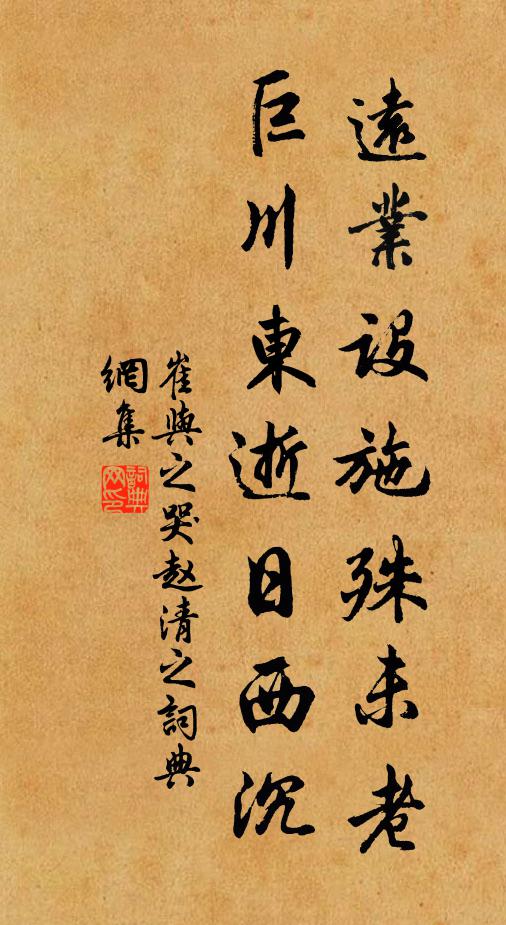 遠業設施殊未老
巨川東逝日西沉
崔與之哭趙清之詞典
網集
詞典
网印